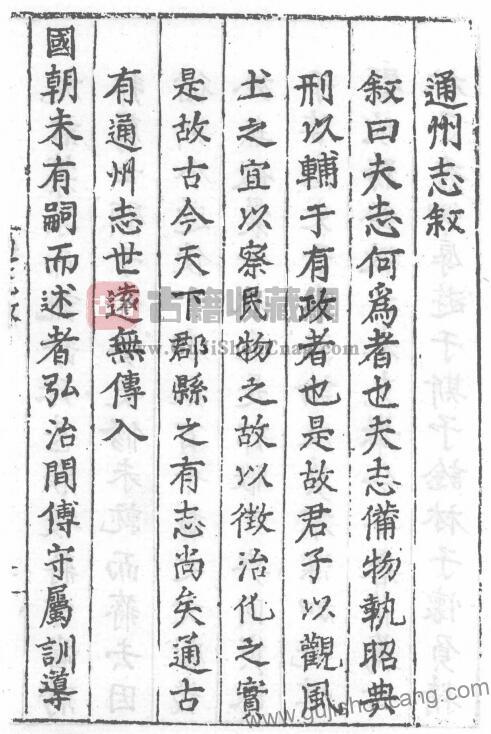 通州志敘
敘曰夫志何爲者也夫志備物執昭典
刑以輔于有政者也是故君子以觀風
土之宜以察民物之故以徵治化之實
是故古今天下郡縣之有志尚矣通古
有通州志世遠無傳入
國朝未有嗣而述者弘治間傅守屬訓導
古籍收藏網
www.GuJiShouCang.com
www.gujishoucang.com